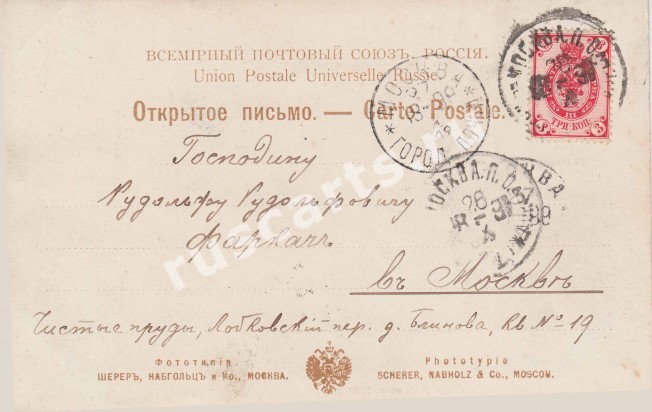 ВСЕМІРНЫЙ ПОЧТОВЫЙ СОЮЗЪ. РОССІЯ.
Union Postale Universelle Russie.
Открытое письмо. — Carte Postale.
ТРИ КОП.
3
МОСКВА
ГОРОД. ПОЧ
МОСКВА. П. О.
28
Господину
Рудольфу Рудольфовичу
Фаркачъ
въ Москвѣ
Чистые пруды, Лобковскій пер. д. Блинова, кв № 19
Фототипія
ШЕРЕРЪ, НАБГОЛЬЦЪ и Ко., МОСКВА.
Phototypie
SCHERER, NABHOLZ & Co., MOSCOW.
ruscarts.ru